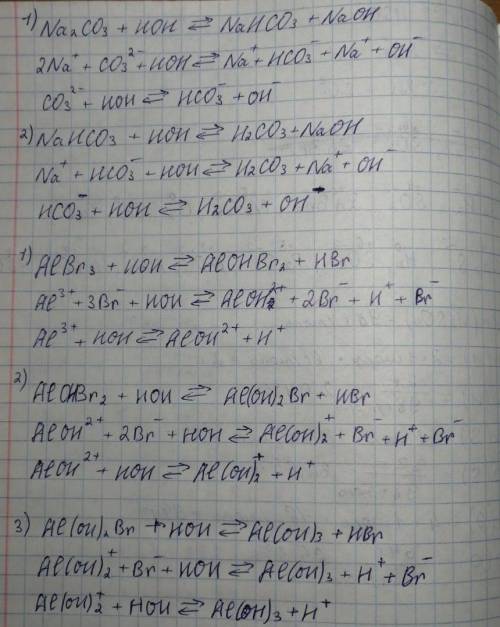 1) Na₂CO₃ + HOH ⇄ NaHCO₃ + NaOH
2Na⁺ + CO₃²⁻ + HOH ⇄ Na⁺ + HCO₃⁻ + Na⁺ + OH⁻
CO₃²⁻ + HOH ⇄ HCO₃⁻ + OH⁻
2) NaHCO₃ + HOH ⇄ H₂CO₃ + NaOH
Na⁺ + HCO₃⁻ + HOH ⇄ H₂CO₃ + Na⁺ + OH⁻
HCO₃⁻ + HOH ⇄ H₂CO₃ + OH⁻
1) AlBr₃ + HOH ⇄ AlOHBr₂ + HBr
Al³⁺ + 3Br⁻ + HOH ⇄ AlOH²⁺ + 2Br⁻ + H⁺ + Br⁻
Al³⁺ + HOH ⇄ AlOH²⁺ + H⁺
2) AlOHBr₂ + HOH ⇄ Al(OH)₂Br + HBr
AlOH²⁺ + 2Br⁻ + HOH ⇄ Al(OH)₂⁺ + Br⁻ + H⁺ + Br⁻
AlOH²⁺ + HOH ⇄ Al(OH)₂⁺ + H⁺
3) Al(OH)₂Br + HOH ⇄ Al(OH)₃ + HBr
Al(OH)₂⁺ + Br⁻ + HOH ⇄ Al(OH)₃ + H⁺ + Br⁻
Al(OH)₂⁺ + HOH ⇄ Al(OH)₃ + H⁺